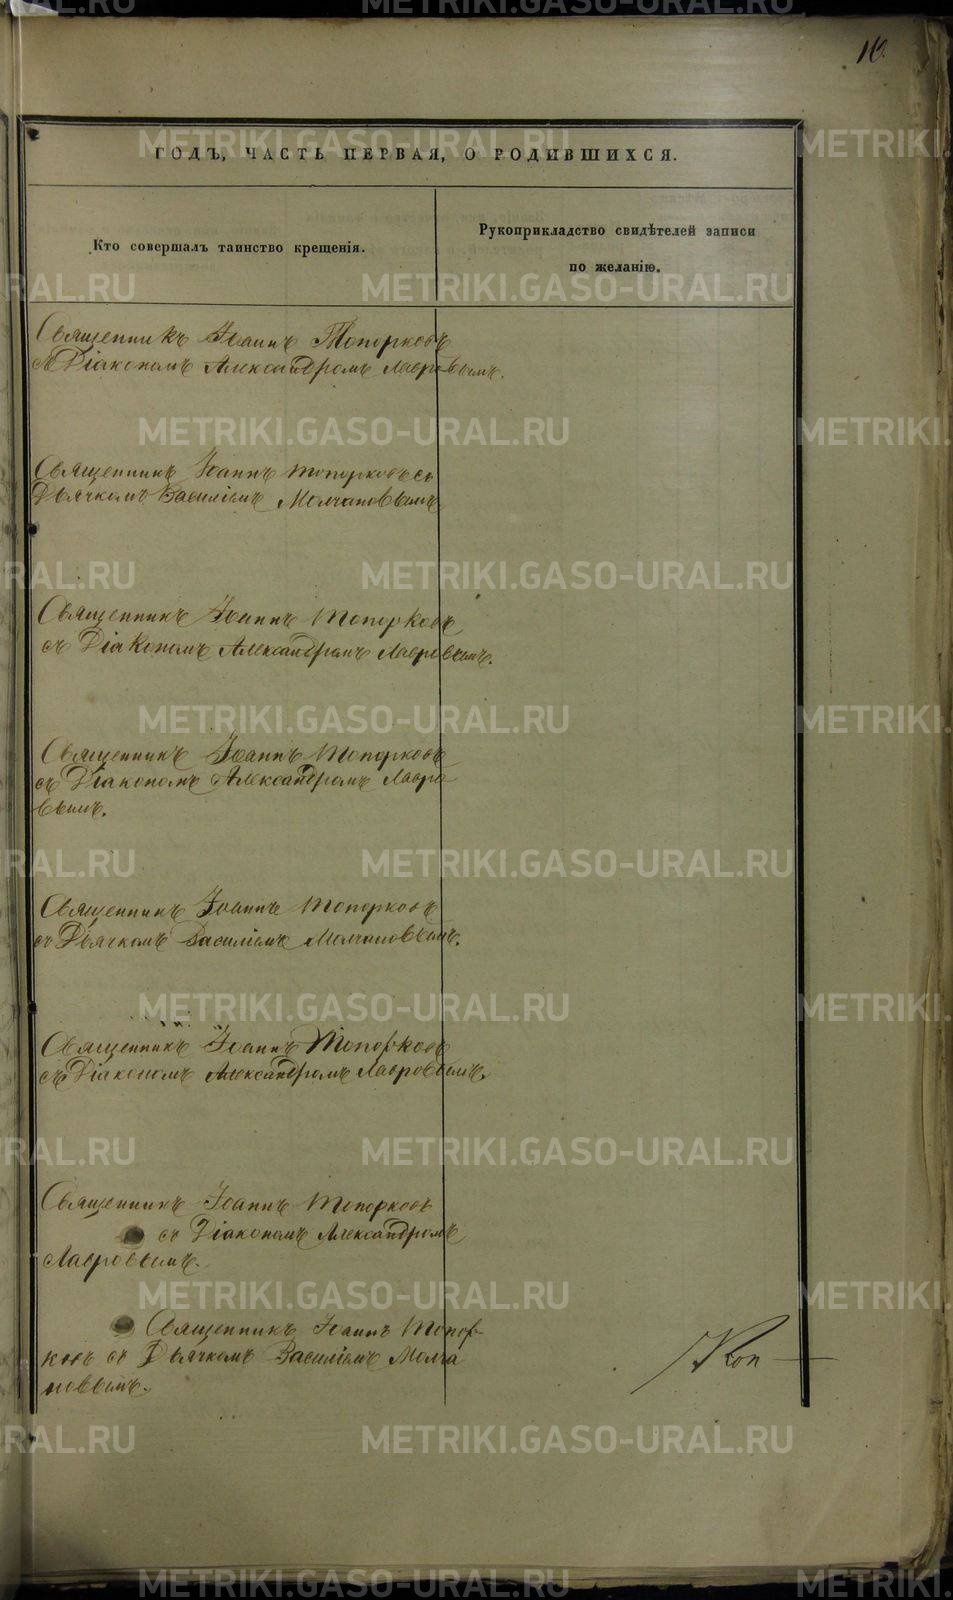 16
ГОДЪ, ЧАСТЬ ПЕРВАЯ, О РОДИВШИХСЯ.
Кто совершалъ таинство крещенія.
Рукоприкладство свидѣтелей записи
по желанію.
Священникъ Іоаннъ Топорковъ
съ Діакономъ Александромъ Лавровымъ.
Священникъ Іоаннъ Топорковъ съ
Дьячкомъ Василіемъ Молчановымъ
Священникъ Іоаннъ Топорковъ
съ Діакономъ Александромъ Лавровымъ.
Священникъ Іоаннъ Топорковъ
съ Діакономъ Александромъ Лавро
вымъ.
Священникъ Іоаннъ Топорковъ
съ Дьячкомъ Василіемъ Молчановымъ.
Священникъ Іоаннъ Топорковъ
съ Діакономъ Александромъ Лавровымъ.
Священникъ Іоаннъ Топорковъ
съ Діакономъ Александромъ
Лавровымъ.
Священникъ Іоаннъ Топор-
ковъ съ Дьячкомъ Василіемъ Молча
новымъ.
METRIKI.GASO-URAL.RU